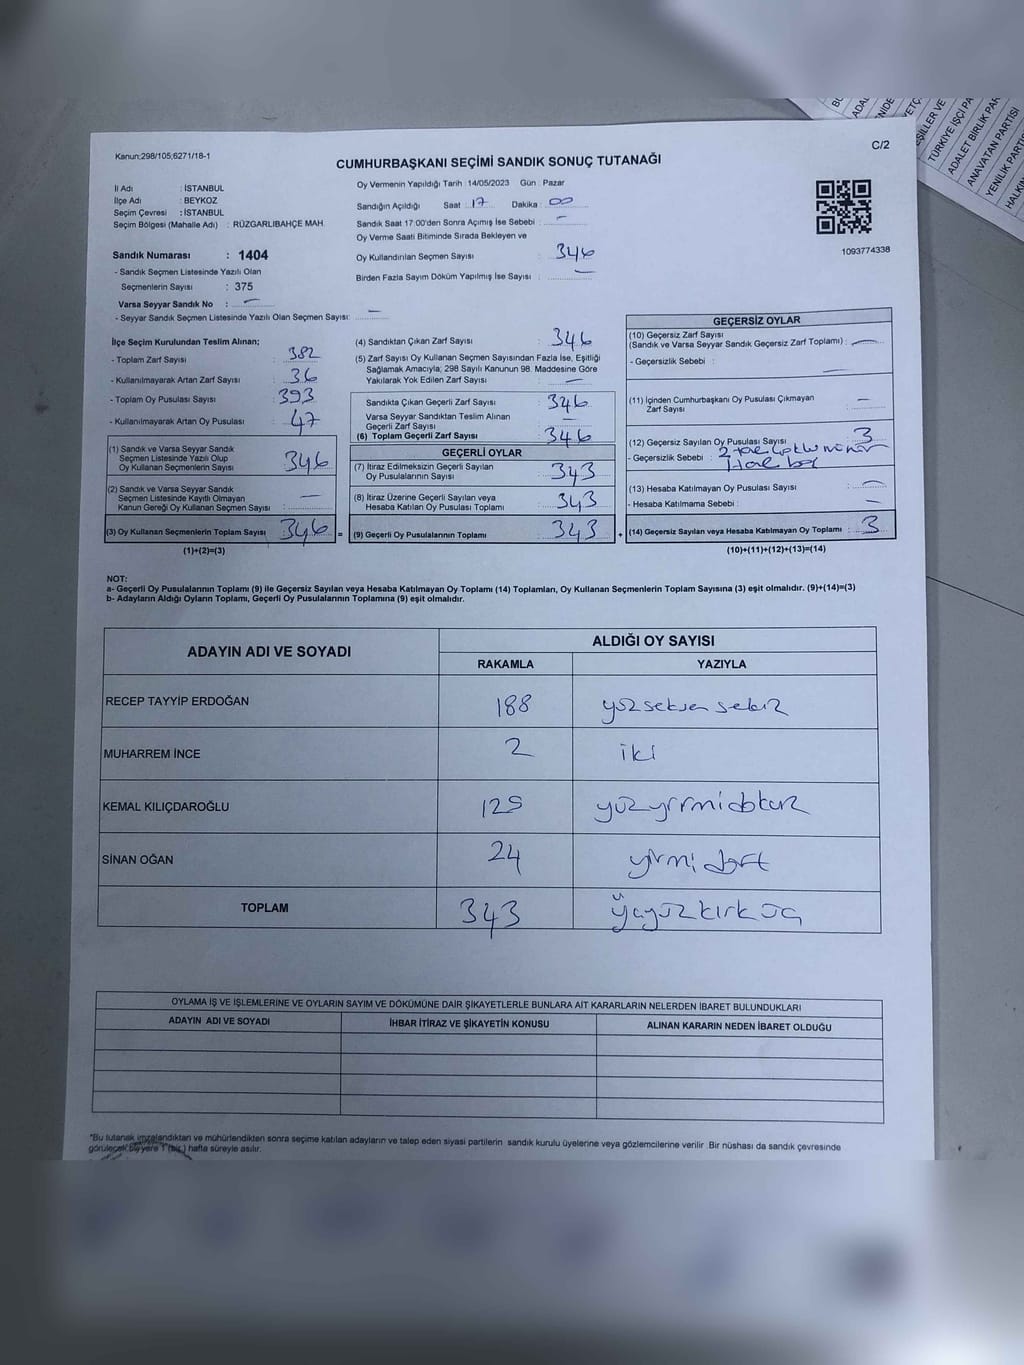 Kanun:298/105,6271/18-1
C/2
CUMHURBAŞKANI SEÇİMİ SANDIK SONUÇ TUTANAĞI
İl Adı : İSTANBUL
İlçe Adı : BEYKOZ
Seçim Çevresi : İSTANBUL
Seçim Bölgesi (Mahalle Adı) : RÜZGARLIBAHÇE MAH.
Sandık Numarası : 1404
- Sandık Seçmen Listesinde Yazılı Olan
Seçmenlerin Sayısı : 375
Varsa Seyyar Sandık No : —
- Seyyar Sandık Seçmen Listesinde Yazılı Olan Seçmen Sayısı: —
Oy Vermenin Yapıldığı Tarih :14/05/2023 Gün : Pazar
Sandığın Açıldığı Saat : 17 Dakika : 00
Sandık Saat 17:00'den Sonra Açımış İse Sebebi : —
Oy Verme Saati Bitiminde Sırada Bekleyen ve
Oy Kullandırılan Seçmen Sayısı : 346
Birden Fazla Sayım Döküm Yapılmış İse Sayısı : —
1093774338
İlçe Seçim Kurulundan Teslim Alınan;
- Toplam Zarf Sayısı : 382
- Kullanılmayarak Artan Zarf Sayısı : 36
- Toplam Oy Pusulası Sayısı : 393
- Kullanılmayarak Artan Oy Pusulası : 47
(1) Sandık ve Varsa Seyyar Sandık
Seçmen Listesinde Yazılı Olup
Oy Kullanan Seçmenlerin Sayısı : 346
(2) Sandık ve Varsa Seyyar Sandık
Seçmen Listesinde Kayıtlı Olmayan
Kanun Gereği Oy Kullanan Seçmen Sayısı : —
(3) Oy Kullanan Seçmenlerin Toplam Sayısı : 346 =
(1)+(2)=(3)
(4) Sandıktan Çıkan Zarf Sayısı : 346
(5) Zarf Sayısı Oy Kullanan Seçmen Sayısından Fazla İse, Eşitliği
Sağlamak Amacıyla; 298 Sayılı Kanunun 98. Maddesine Göre
Yakılarak Yok Edilen Zarf Sayısı : —
Sandıkta Çıkan Geçerli Zarf Sayısı : 346
Varsa Seyyar Sandıktan Teslim Alınan
Geçerli Zarf Sayısı : —
(6) Toplam Geçerli Zarf Sayısı : 346
GEÇERLİ OYLAR
(7) İtiraz Edilmeksizin Geçerli Sayılan
Oy Pusulalarının Sayısı : 343
(8) İtiraz Üzerine Geçerli Sayılan veya
Hesaba Katılan Oy Pusulası Toplamı : 343
(9) Geçerli Oy Pusulalarının Toplamı : 343 +
GEÇERSİZ OYLAR
(10) Geçersiz Zarf Sayısı
(Sandık ve Varsa Seyyar Sandık Geçersiz Zarf Toplamı) : —
- Geçersizlik Sebebi : —
(11) İçinden Cumhurbaşkanı Oy Pusulası Çıkmayan
Zarf Sayısı : —
(12) Geçersiz Sayılan Oy Pusulası Sayısı : 3
- Geçersizlik Sebebi : 2 tane
1 tane boş
(13) Hesaba Katılmayan Oy Pusulası Sayısı : —
- Hesaba Katılmama Sebebi : —
(14) Geçersiz Sayılan veya Hesaba Katılmayan Oy Toplamı : 3
(10)+(11)+(12)+(13)=(14)
NOT:
a- Geçerli Oy Pusulalarının Toplamı (9) ile Geçersiz Sayılan veya Hesaba Katılmayan Oy Toplamı (14) Toplamları, Oy Kullanan Seçmenlerin Toplam Sayısına (3) eşit olmalıdır. (9)+(14)=(3)
b- Adayların Aldığı Oyların Toplamı, Geçerli Oy Pusulalarının Toplamına (9) eşit olmalıdır.
ADAYIN ADI VE SOYADI ALDIĞI OY SAYISI
RAKAMLA YAZIYLA
RECEP TAYYİP ERDOĞAN 188 yüz seksen sekiz
MUHARREM İNCE 2 iki
KEMAL KILIÇDAROĞLU 129 yüz yirmi dokuz
SİNAN OĞAN 24 yirmi dört
TOPLAM 343 Üçyüz kırk üç
OYLAMA İŞ VE İŞLEMLERİNE VE OYLARIN SAYIM VE DÖKÜMÜNE DAİR ŞİKAYETLERLE BUNLARA AİT KARARLARIN NELERDEN İBARET BULUNDUKLARI
ADAYIN ADI VE SOYADI İHBAR İTİRAZ VE ŞİKAYETİN KONUSU ALINAN KARARIN NEDEN İBARET OLDUĞU
*Bu tutanak imzalandıktan ve mühürlendikten sonra seçime katılan adayların ve talep eden siyasi partilerin sandık kurulu üyelerine veya gözlemcilerine verilir .Bir nüshası da sandık çevresinde
görülecek bir yere 1 (bir) hafta süreyle asılır.
TÜRKİYE İŞÇİ PA
ADALET BİRLİK PAR
ANAVATAN PARTİSİ
YENİLİK PARTİ
HALKIN